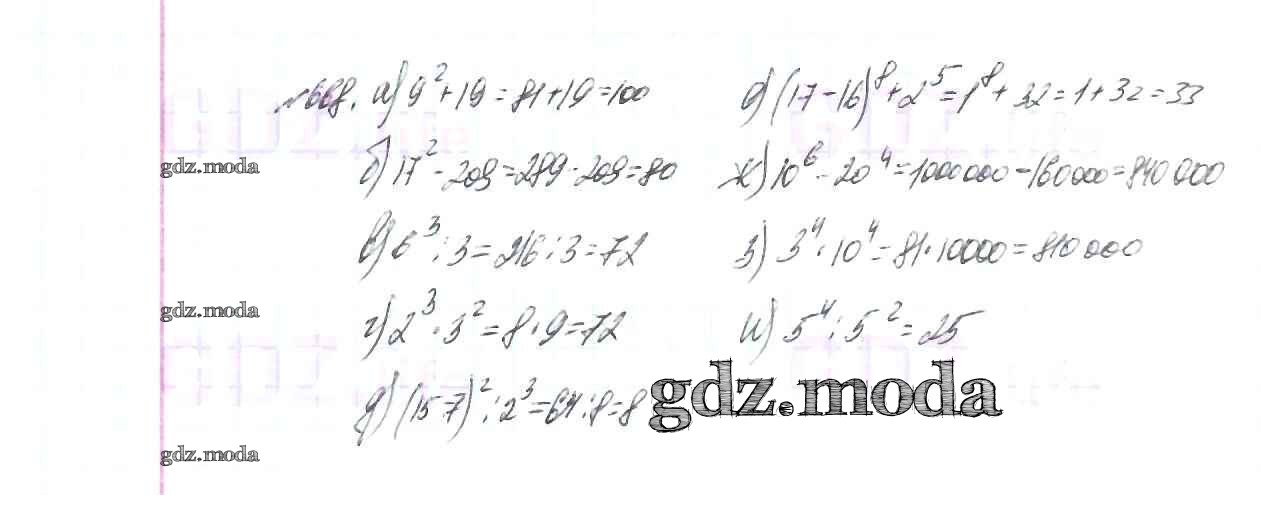 №668. а) 9² + 19 = 81 + 19 = 100
б) 17² - 209 = 289 - 209 = 80
в) 6³ : 3 = 216 : 3 = 72
г) 2³ · 3² = 8 · 9 = 72
д) (15-7)² : 2³ = 64 : 8 = 8
е) (17 - 16)⁸ + 2⁵ = 1⁸ + 32 = 1 + 32 = 33
ж) 10⁶ - 20⁴ = 1000000 - 160000 = 840 000
з) 3⁴ · 10⁴ = 81 · 10000 = 810 000
и) 5⁴ : 5² = 25
gdz.moda
gdz.moda
gdz.moda
gdz.moda